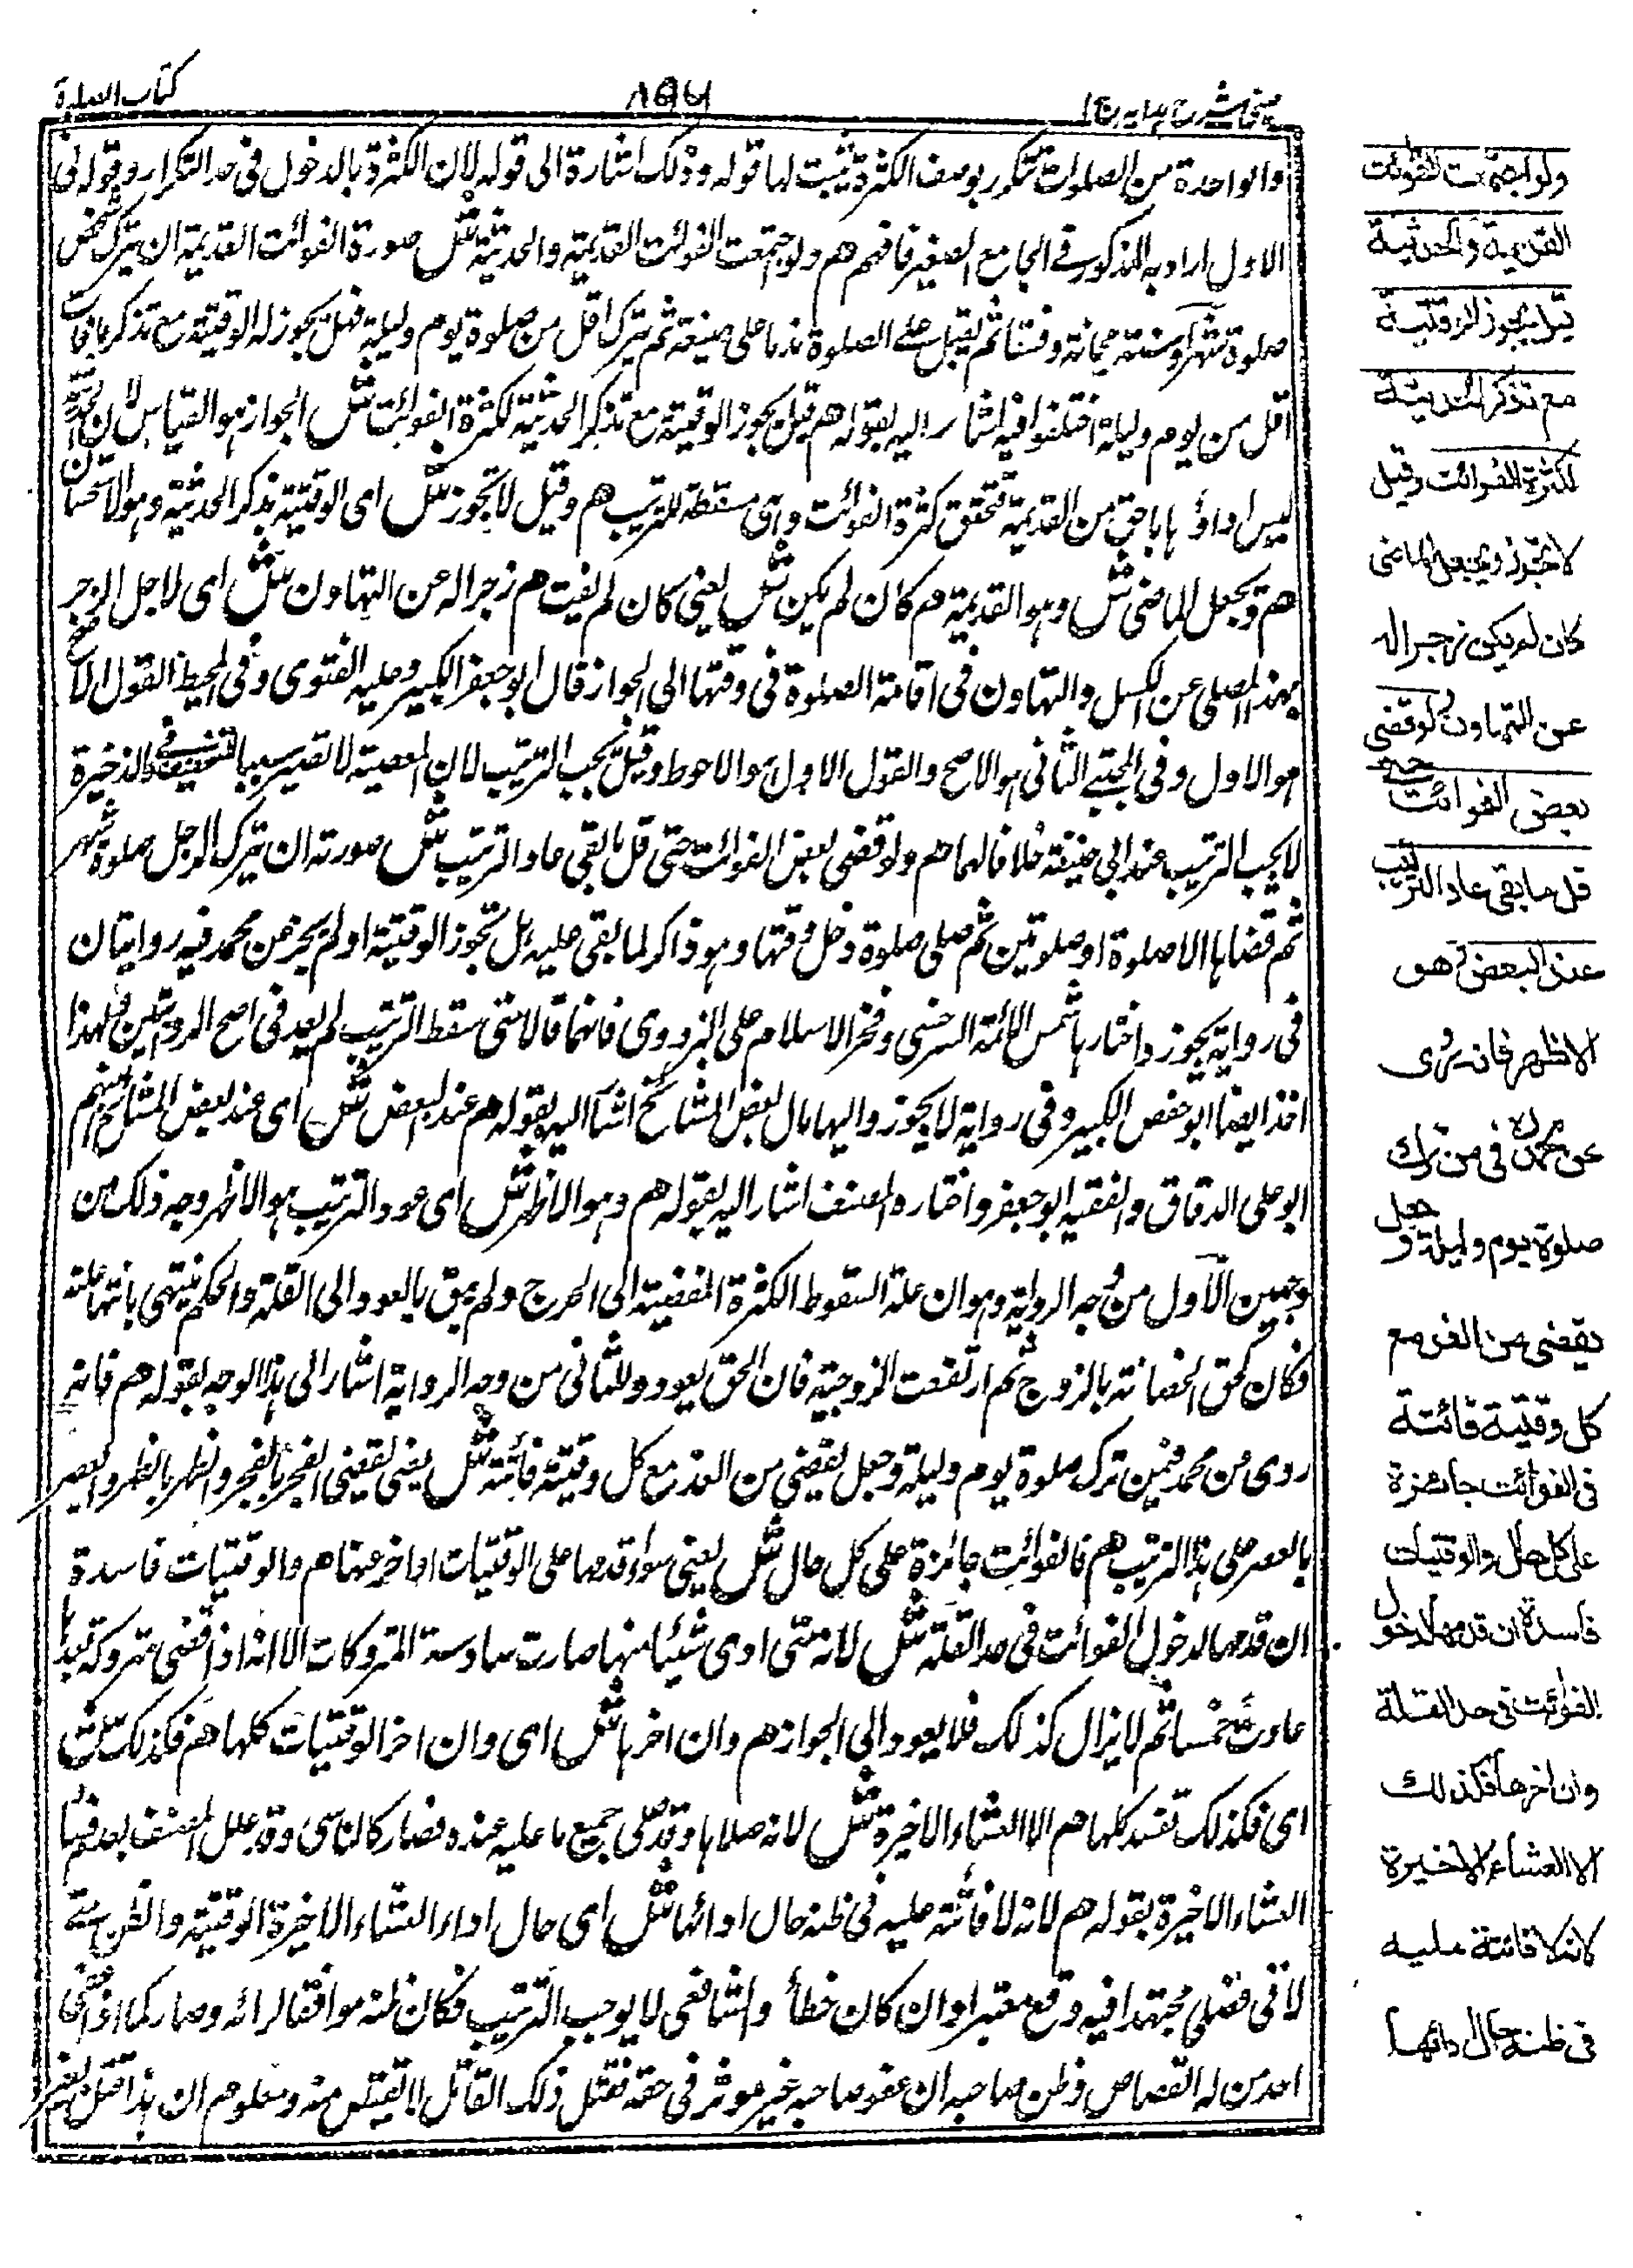 عینی شرح هدایہ ج ۱
۸۹۶
کتاب الصلوة
والواحدة من الصلوات تتكرر بوصف الكثرة تثبت لها قوله وذلك اشارة الى قوله لان الكثرة بالدخول في حد التكرار وقوله في
الاول اراد به المذكور في الجامع الصغير فافهم هم ولو اجتمعت الفوائت القديمة والحديثة ش صورة الفوائت القديمة ان يترك شخص
صلوة شهر او سنة مجانة وفسقا ثم يقبل على الصلوة ندما على صنيعه ثم يترك اقل من صلوة يوم وليلة فهل يجوز له الوقتية مع تذكر ما فات
اقل من يوم وليلة اختلفوا فيه اشار اليه بقوله هم قيل يجوز الوقتية مع تذكر الحديثة لكثرة الفوائت ش الجواز هو القياس لان
ليس اداؤها باحق من القديمة فتحقق كثرة الفوائت وهي مسقطة للترتيب هم وقيل لا تجوز ش اى الوقتية بذكر الحديثة وهو الاستحسان
هم ويجعل الماضى ش وهو القديمة هم كان لم يكن ش يعنى كان لم يفت هم زجرا له عن التهاون ش اى لاجل الزجر
بهذا المصلى عن الكسل والتهاون فى اقامة الصلوة فى وقتها الى الجواز قال ابو جعفر الكبير وعليه الفتوى وفى المحيط القول الاصح
هو الاول وفى المجتبى الثانى هو الاصح والقول الاول هو الاحوط وقيل يجب الترتيب لان المعصية لا تصير سببا للتخفيف وفى الذخيرة
لا يجب الترتيب عند ابى حنيفة خلافا لهما هم ولو قضى بعض الفوائت حتى قل ما بقى عاد الترتيب ش صورته ان يترك الرجل صلوة شهر
ثم قضاها الا صلوة او صلوتين ثم صلى صلوة دخل وقتها وهو ذاكر لما بقى عليه هل تجوز الوقتية او لم يجز عن محمد فيه روايتان
فى رواية يجوز واختارها شمس الائمة السرخسى وفخر الاسلام على البزدوى فانهما قالا متى سقط الترتيب لم يعد فى اصح الروايتين وبهذا
اخذ ايضا ابو حفص الكبير وفى رواية لا يجوز واليها مال بعض المشائخ اشار اليه بقوله هم عند البعض ش اى عند بعض المشائخ منهم
ابو على الدقاق والفقيه ابو جعفر واختاره المصنف اشار اليه بقوله هم وهو الاظهر ش اى عود الترتيب هو الاظهر وجه ذلك من
وجهين الاول من وجه الرواية وهو ان علة السقوط الكثرة المفضية الى الحرج ولم يبق بالعود الى القلة والحكم ينتهى بانتهاء علته
فكان كحق الحضانة بالزوج ثم ارتفعت الزوجية فان الحق يعود والثانى من وجه الرواية اشار الى هذا الوجه بقوله هم فانه
روى عن محمد فيمن ترك صلوة يوم وليلة وجعل يقضى من الغد مع كل وقتية فائتة ش يعنى يقضى الفجر بالفجر والظهر بالظهر والعصر
بالعصر على هذا الترتيب هم فالفوائت جائزة على كل حال ش يعنى سواء قدمها على الوقتيات او اخر عنها هم والوقتيات فاسدة
ان قدمها لدخول الفوائت فى حد القلة ش لانه متى ادى شيئا منها صارت سادسة المتروكات الا انه اذا قضى متروكة بعدها
عادت خمسا ثم لا يزال كذلك فلا يعود الى الجواز هم وان اخرها ش اى وان اخر الوقتيات كلها هم فكذلك ش
اى فكذلك تفسد كلها هم الا العشاء الاخيرة ش لانه صلاها وقد صلى جميع ما عليه عنده فصار كالناسى وقد علل المصنف بعد فيها
العشاء الاخيرة بقوله هم لانه لا فائتة عليه فى ظنه حال ادائها ش اى حال اداء العشاء الاخيرة الوقتية والظن متى
لاقى فصلا مجتهدا فيه وقع معتبرا وان كان خطأ والشافعى لا يوجب الترتيب فكان ظنه موافقا لرائه وصار كما اذا عفى
احد من له القصاص وظن صاحبه ان عفو صاحبه غير موثر فى حقه فقتل ذلك القاتل لا يقتص منه ومعلوم ان هذا قتل بغير
ولو اجتمعت الفوائت
القديمة والحديثة
قيل يجوز الوقتية
مع تذكر الحديثة
لكثرة الفوائت وقيل
لا تجوز ويجعل الماضى
كان لم يكن زجرا له
عن التهاون ولو قضى
بعض الفوائت حتى
قل ما بقى عاد الترتيب
عند البعض وهو
الاظهر فانه روى
عن محمد فى من ترك
صلوة يوم وليلة وجعل
يقضى من الغد مع
كل وقتية فائتة
فى الفوائت جائزة
على كل حال والوقتيات
فاسدة ان قدمها لدخول
الفوائت فى حد القلة
وان اخرها فكذلك
الا العشاء الاخيرة
لانه لا فائتة عليه
فى ظنه حال ادائها